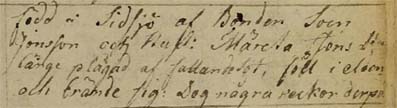 född i Sidsjö af Bonden Sven
Jonsson och Hust: Märeta Jons
länge plågad af fallandesot, föll i elden
och brände sig. Dog några veckor derpå